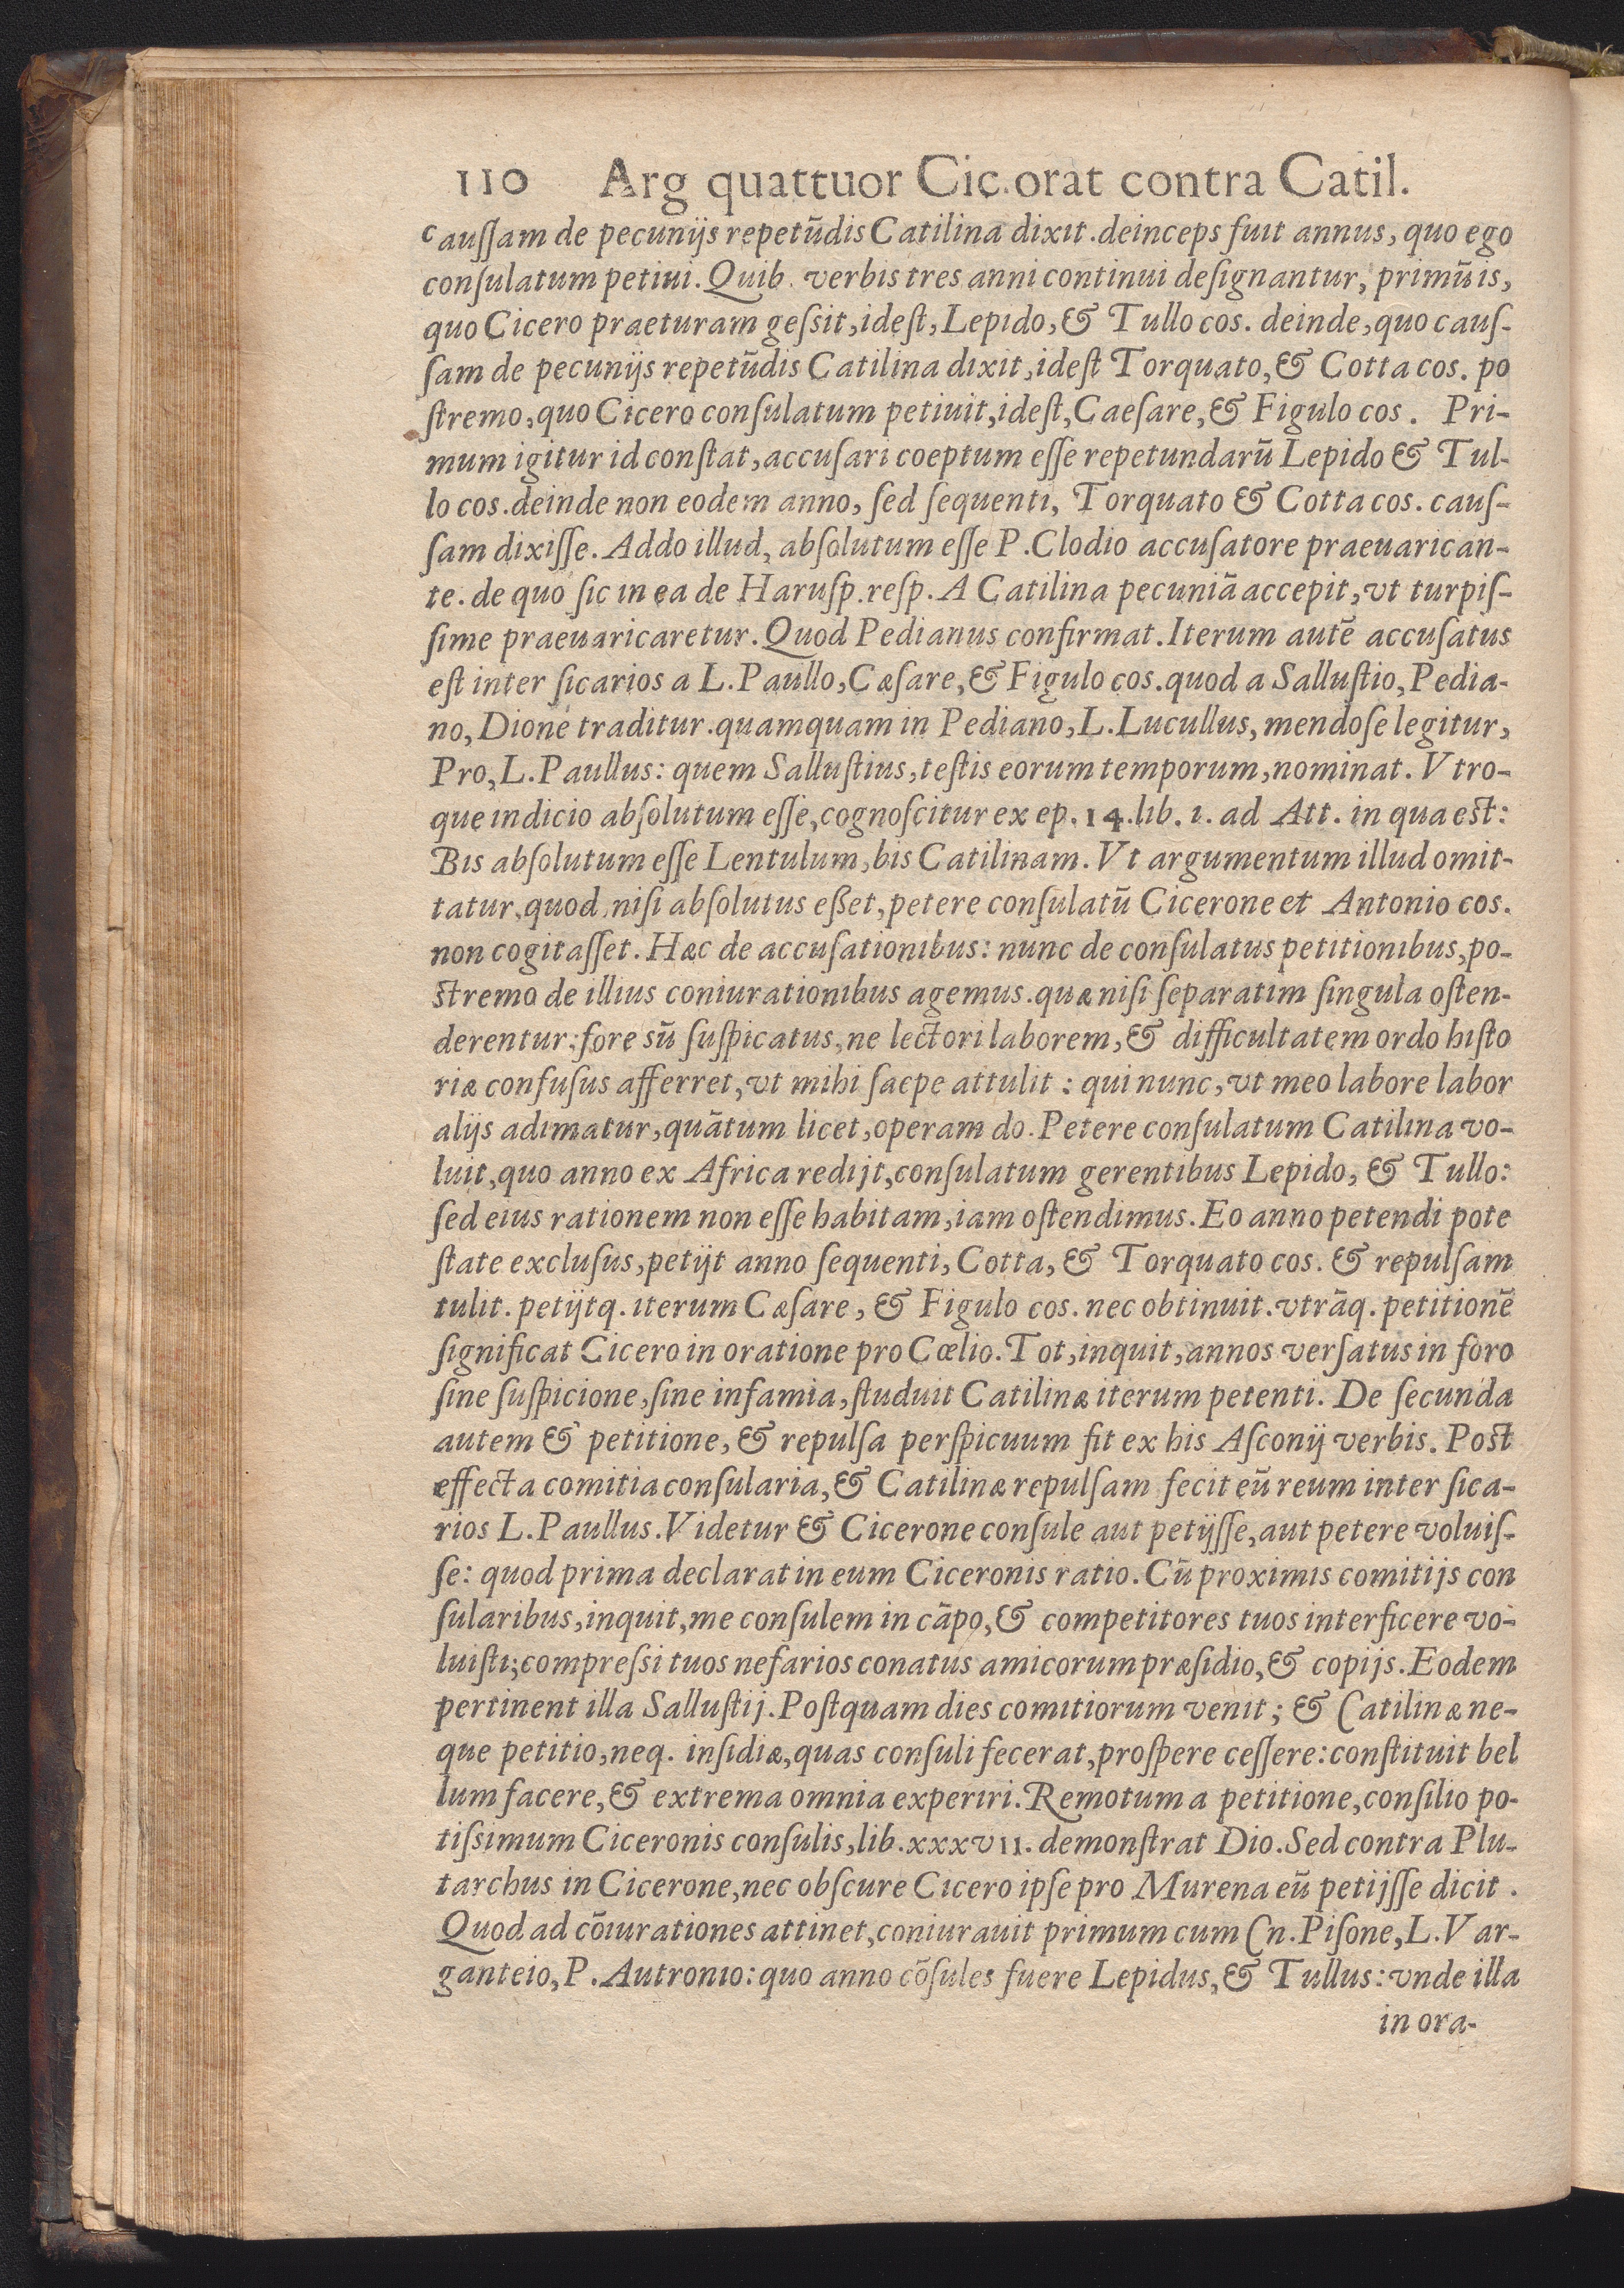 110 Arg quattuor Cic.orat contra Catil.
cauſſam de pecunijs repetūdis Catilina dixit.deinceps fuit annus, quo ego
conſulatum petiui. Quib. verbis tres anni continui deſignantur, primū is,
quo Cicero praeturam geſsit, ideſt, Lepido, & Tullo cos. deinde, quo cauſ-
ſam de pecunijs repetūdis Catilina dixit, ideſt Torquato, & Cotta cos. po
ſtremo, quo Cicero conſulatum petiuit, ideſt, Caeſare, & Figulo cos. Pri-
mum igitur id conſtat, accuſari coeptum eſſe repetundarū Lepido & Tul-
lo cos. deinde non eodem anno, ſed ſequenti, Torquato & Cotta cos. cauſ-
ſam dixiſſe. Addo illud, abſolutum eſſe P. Clodio accuſatore praeuarican-
te. de quo ſic in ea de Haruſp. reſp. A Catilina pecuniā accepit, vt turpiſ-
ſime praeuaricaretur. Quod Pedianus confirmat. Iterum autē accuſatus
eſt inter ſicarios a L. Paullo, Cæſare, & Figulo cos. quod a Salluſtio, Pedia-
no, Dione traditur. quamquam in Pediano, L. Lucullus, mendoſe legitur,
Pro, L. Paullus: quem Salluſtius, teſtis eorum temporum, nominat. Vtro-
que indicio abſolutum eſſe, cognoſcitur ex ep. 14. lib. 1. ad Att. in qua est:
Bis abſolutum eſſe Lentulum, bis Catilinam. Vt argumentum illud omit-
tatur, quod, niſi abſolutus eßet, petere conſulatū Cicerone et Antonio cos.
non cogitaſſet. Hæc de accuſationibus: nunc de conſulatus petitionibus, po-
stremo de illius coniurationibus agemus. quæ niſi ſeparatim ſingula oſten-
derentur: fore sū ſuſpicatus, ne lectori laborem, & difficultatem ordo hiſto
riæ confuſus afferret, vt mihi ſaepe attulit: qui nunc, vt meo labore labor
alijs adimatur, quātum licet, operam do. Petere conſulatum Catilina vo-
luit, quo anno ex Africa redijt, conſulatum gerentibus Lepido, & Tullo:
ſed eius rationem non eſſe habitam, iam oſtendimus. Eo anno petendi pote
ſtate excluſus, petijt anno ſequenti, Cotta, & Torquato cos. & repulſam
tulit. petijtq. iterum Cæſare, & Figulo cos. nec obtinuit. vtrāq. petitionē
ſignificat Cicero in oratione pro Cœlio. Tot, inquit, annos verſatus in foro
ſine ſuſpicione, ſine infamia, ſtuduit Catilinæ iterum petenti. De ſecunda
autem & petitione, & repulſa perſpicuum fit ex his Aſconij verbis. Post
effecta comitia conſularia, & Catilinæ repulſam fecit eū reum inter ſica-
rios L. Paullus. Videtur & Cicerone conſule aut petijſſe, aut petere voluiſ-
ſe: quod prima declarat in eum Ciceronis ratio. Cū proximis comitijs con
ſularibus, inquit, me conſulem in cāpo, & competitores tuos interficere vo-
luiſti; compreſsi tuos nefarios conatus amicorum præſidio, & copijs. Eodem
pertinent illa Salluſtij. Poſtquam dies comitiorum venit; & Catilinæ ne-
que petitio, neq. inſidiæ, quas conſuli fecerat, proſpere ceſſere: conſtituit bel
lum facere, & extrema omnia experiri. Remotum a petitione, conſilio po-
tiſsimum Ciceronis conſulis, lib. xxxvii. demonſtrat Dio. Sed contra Plu-
tarchus in Cicerone, nec obſcure Cicero ipſe pro Murena eū petijſſe dicit.
Quod ad cōiurationes attinet, coniurauit primum cum Cn. Piſone, L. Var-
ganteio, P. Autronio: quo anno cōſules fuere Lepidus, & Tullus: vnde illa
in ora-